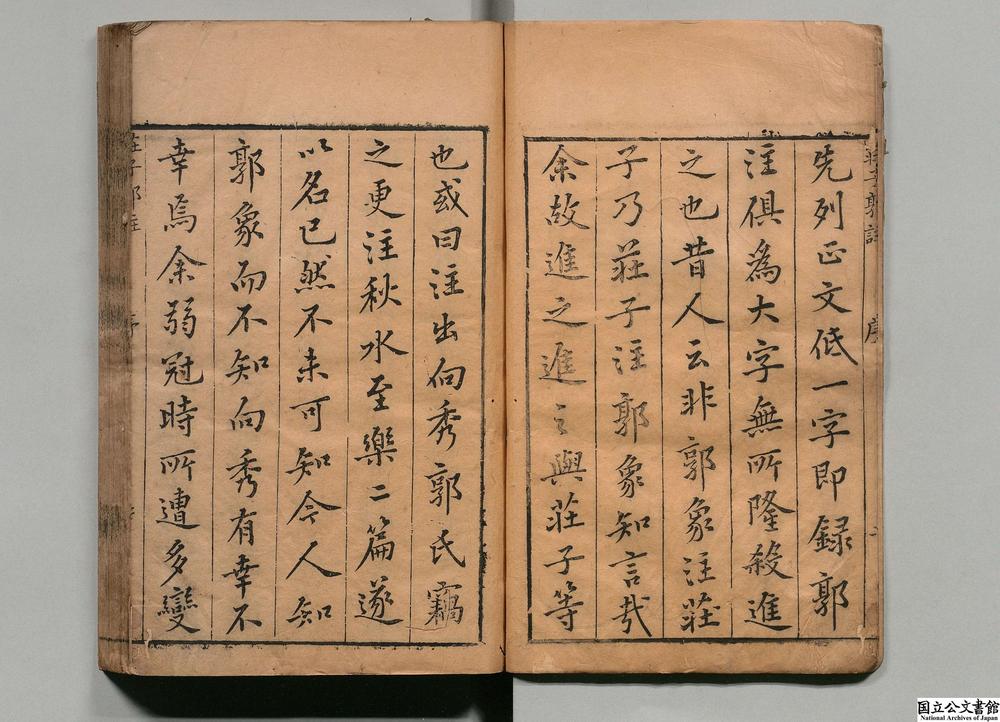 先列正文低一字即録郭
注俱為大字無所隆殺進
之也昔人云非郭象注莊
子乃莊子注郭象知言哉
余故進之進之與莊子等
也或曰注出向秀郭氏竊
之更注秋水至樂二篇遂
以名已然不未可知今人知
郭象而不知向秀有幸不
幸焉余弱冠時所遭多變
莊子郭註
序
莊子郭註
序
国立公文書館
National Archives of Japan